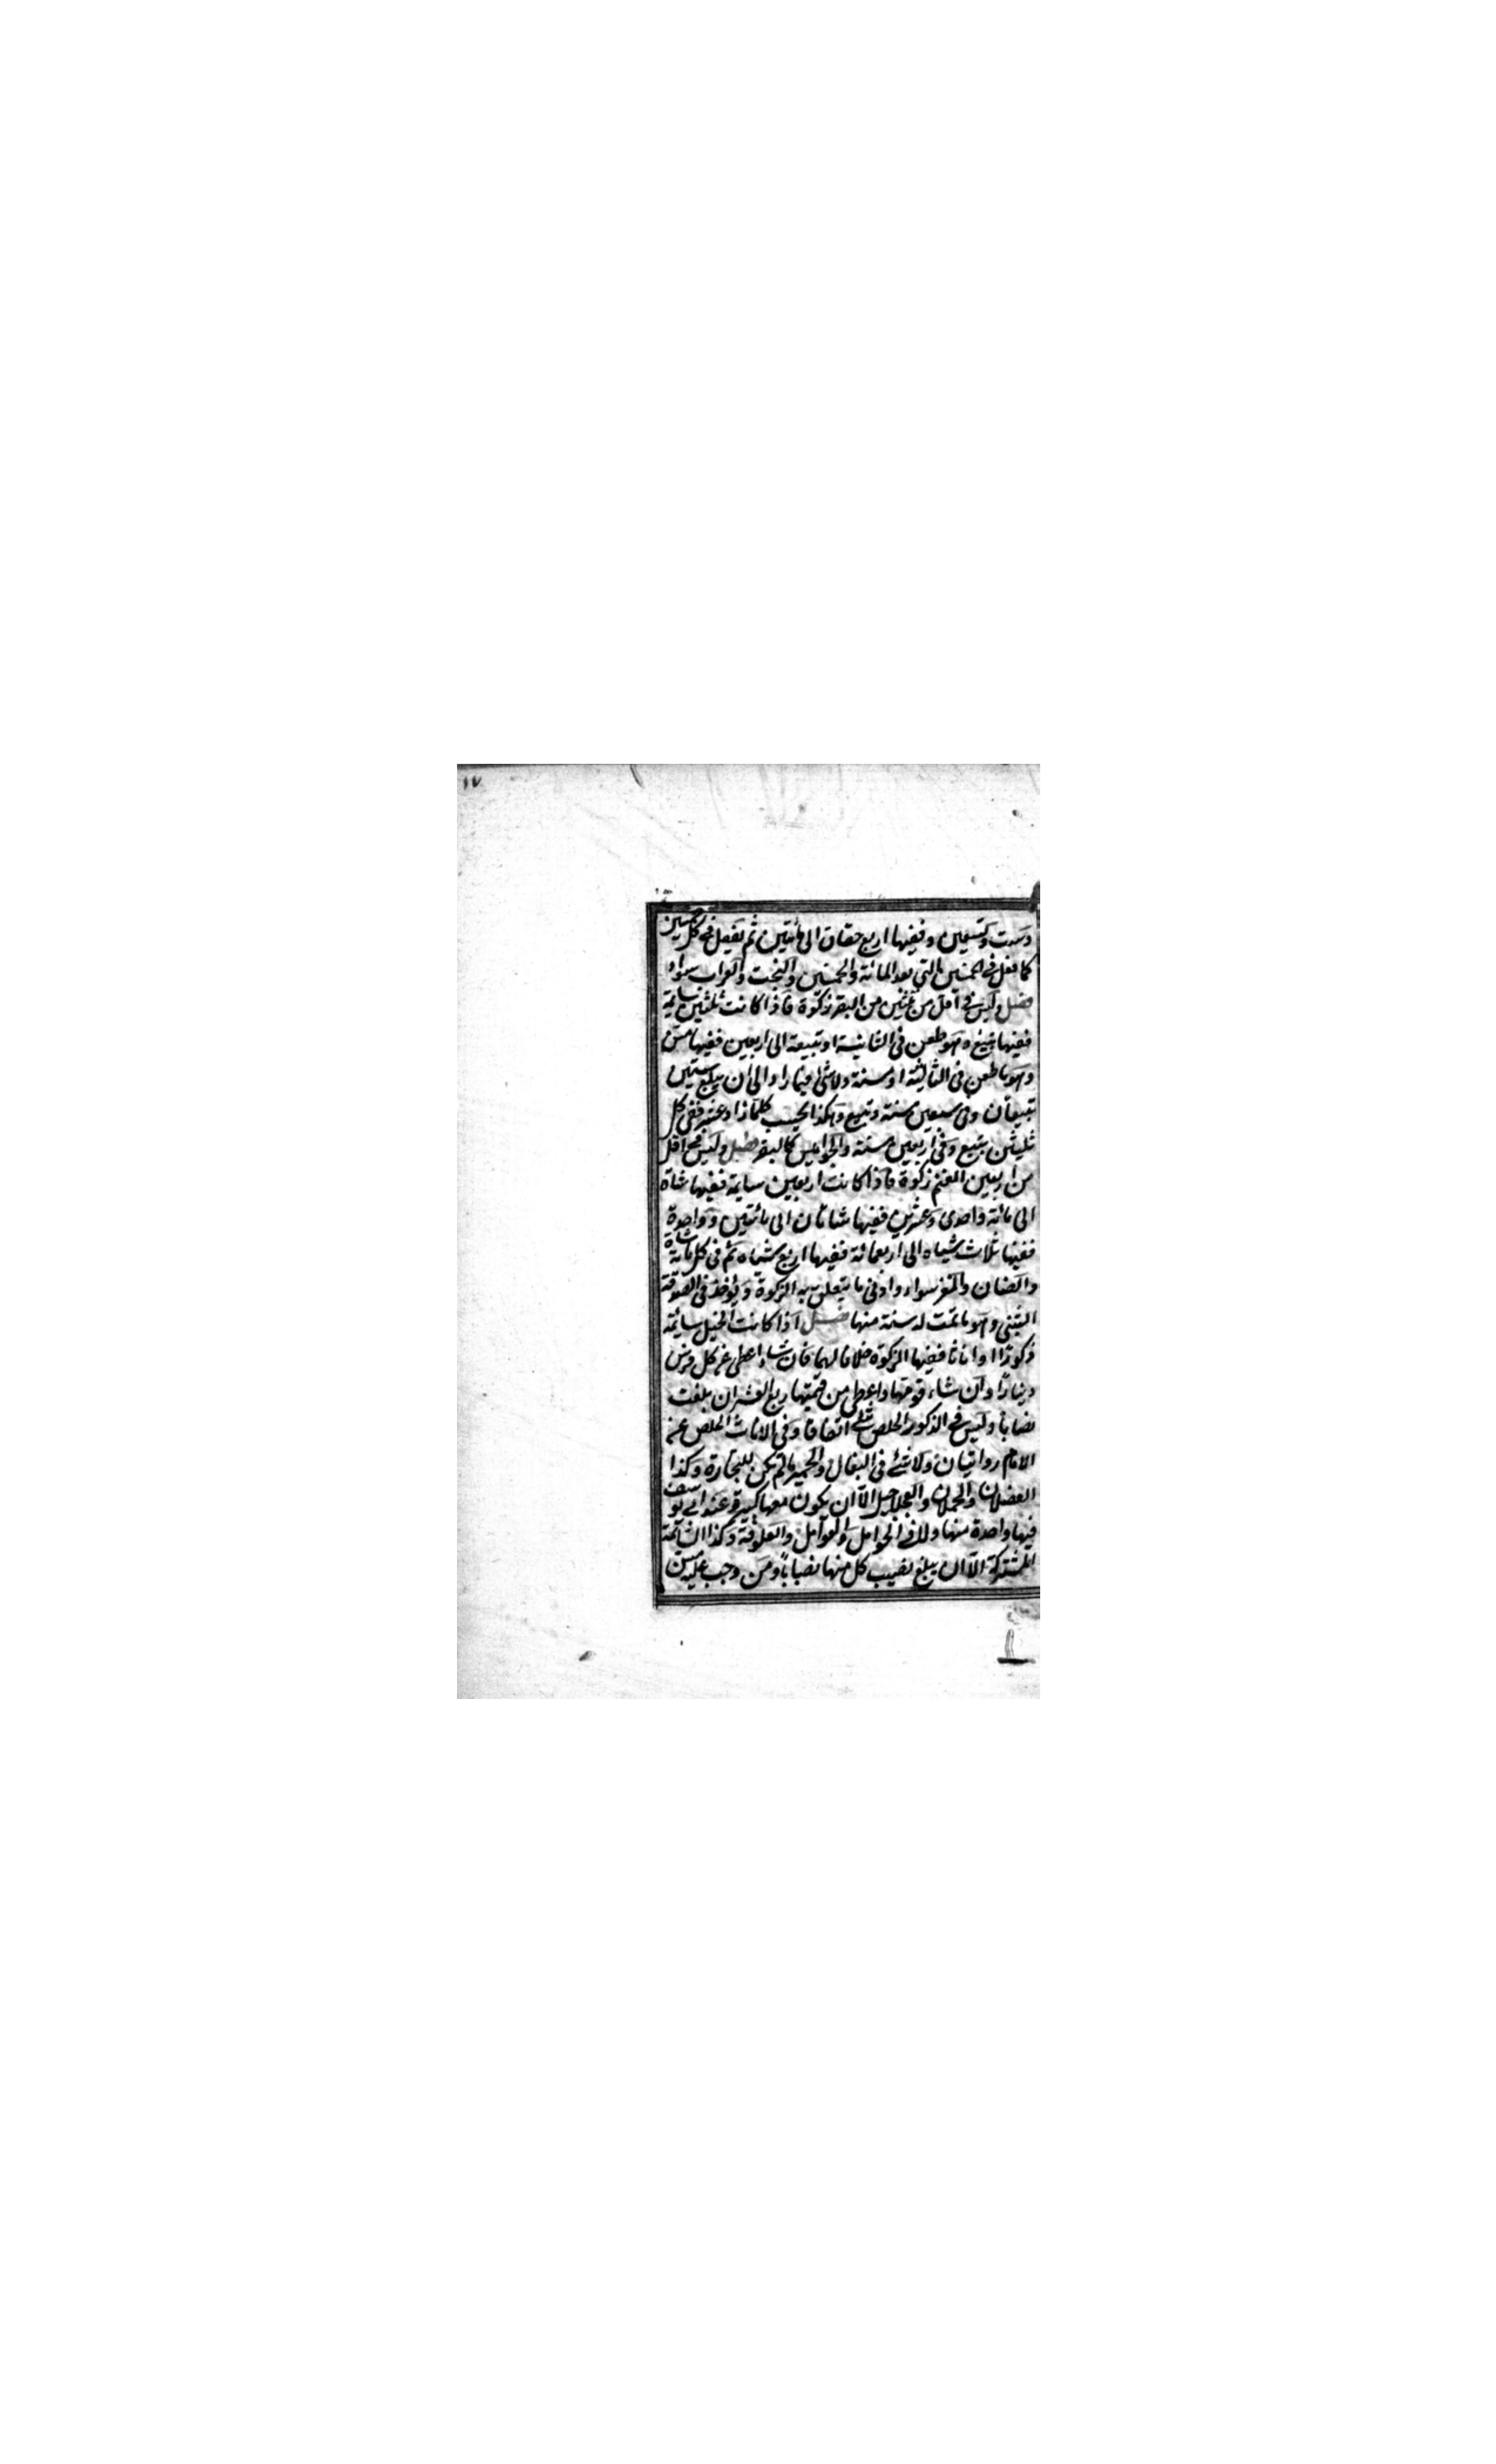 ١٧
وست وتسعين وففيها اربع حقاق الى مأتين ثم تفعل في كل خمسين
كما تفعل في الخمسين التي بعد المائة والخمسين والبخت والعراب سواء
فصل وليس في اقل من ثلثين من البقر زكوة فاذا كانت ثلثين سايمة
ففيها تبيع وهو طعن في الثانية او تبيعة الى اربعين ففيها مسن
وهو ما طعن في الثالثة او مسنة ولا شئ فيما زاد الى ان يبلغ ستين
تبيعان وفي سبعين مسنة وتبيع وهكذا يحسب كلما زاد عشر ففي كل
ثلثين تبيع وفي اربعين مسنة والجواميس كالبقر فصل وليس في اقل
من اربعين الغنم زكوة فاذا كانت اربعين سايمة ففيها شاة
الى مائة واحدى وعشرين ففيها شاتان الى مائتين وواحدة
ففيها ثلاث شياه الى اربعمائة ففيها اربع شياه ثم في كل مائة شاة
والضان والمعز سواء وادنى ما يتعلق به الزكوة ويؤخذ في الصدقة
الثنى وهو ما تمت له سنة منها فصل اذا كانت الخيل سايمة
ذكورا او اناثا ففيها الزكوة خلافا لهما فان شاء اعطى عن كل فرس
دينارا وان شاء قومها واعطى من قيمتها ربع العشر ان بلغت
نصابا وليس في الذكور الخلص شئ اتفاقا وفي الاناث الخلص عن
الامام روايتان ولا شئ في البغال والحمير ما لم تكن للتجارة وكذا
الفصلان والحملان والعجاجيل الا ان يكون معها كبير وعند ابي يوسف
فيها واحدة منها ولا في الحوامل والعوامل والعلوفة وكذا السائمة
المشتركة الا ان يبلغ نصيب كل منها نصابا ومن وجب عليه مسن